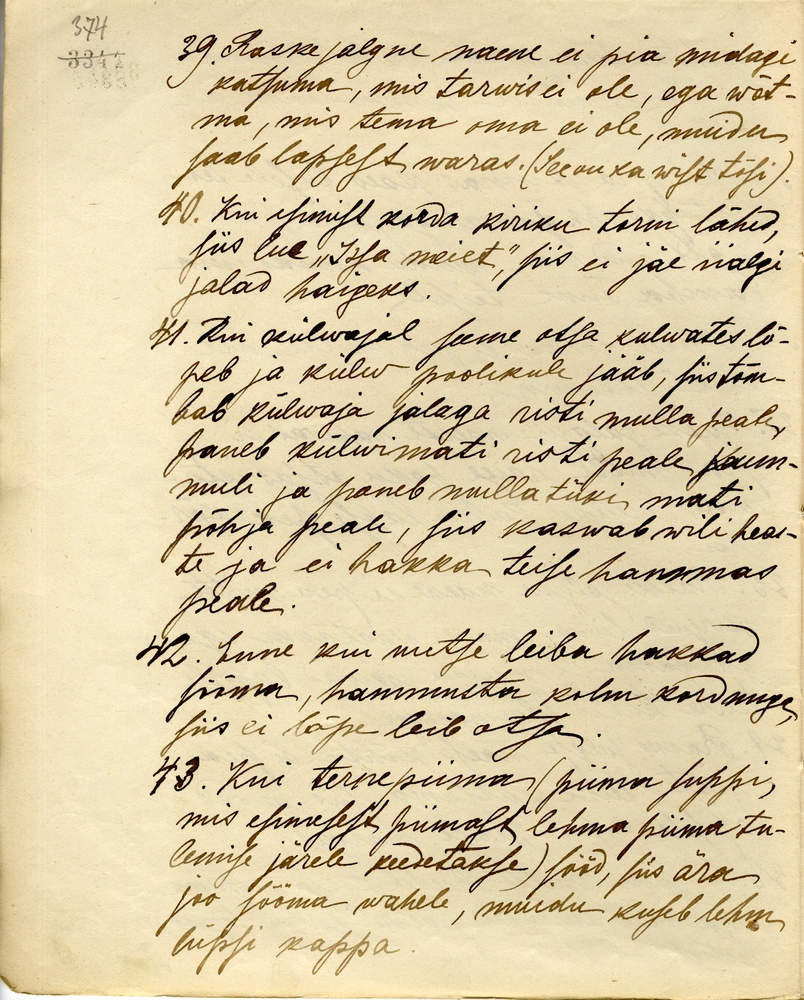 374
39. Raske jalgne naene ei pia midagi
katsuma, mis tarwis ei ole, ega wõt-
ma, mis tema oma ei ole, muidu
saab lapsest waras. (See on ka wist tõsi).
40. Kui esimist korda kiriku torni lähed,
siis lue „Issa meiet“, siis ei jäe iialgi
jalad haigeks.
41. Kui külwajal seeme otsa kulwates lõ-
peb ja külw poolikule jääb, siis tõm-
bab külwaja jalaga risti mulla peale,
paneb külwimati risti peale kum-
muli ja paneb mulla tüki mati
põhja peale, siis kaswab wili heas-
te ja ei hakka teise hammas
peale.
42. Enne kui uutse leiba hakkad
sööma, hammusta kolm kord nuga,
siis ei lõpe leib otsa.
43. Kui ternepiima (piima suppi,
mis esimesest piimast lehma piima tu-
lemise järele keedetakse) sööd, siis ära
joo sööma wahele, muidu kuseb lehm
lüpsi kappa.